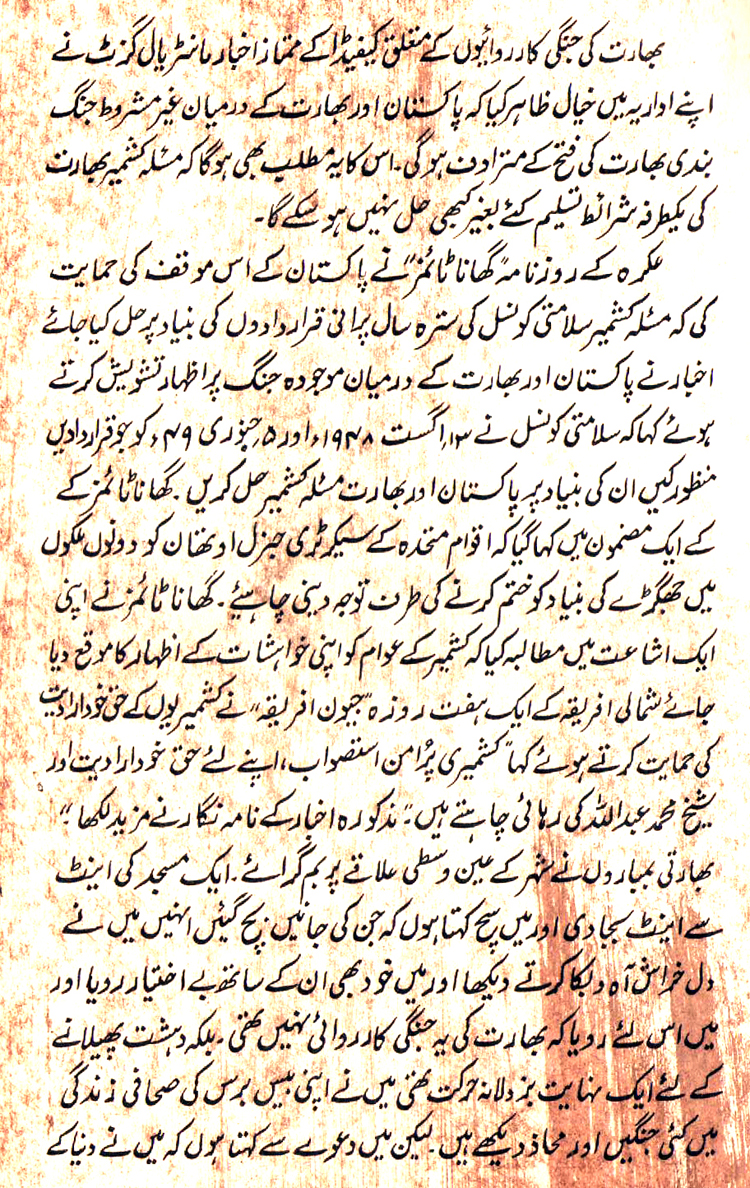 بھارت کی جنگی کارروائیوں کے متعلق کینیڈا کے ممتاز اخبار مانٹریال گزٹ نے
اپنے اداریہ میں خیال ظاہر کیا کہ پاکستان اور بھارت کے درمیان غیر مشروط جنگ
بندی بھارت کی فتح کے مترادف ہوگی۔ اس کا یہ مطلب بھی ہوگا کہ مسئلہ کشمیر بھارت
کی یکطرفہ شرائط تسلیم کئے بغیر کبھی حل نہیں ہو سکے گا۔
عکرہ کے روزنامہ "گھانا ٹائمز" نے پاکستان کے اس موقف کی حمایت
کی کہ مسئلہ کشمیر سلامتی کونسل کی سترہ سال پرانی قراردادوں کی بنیاد پر حل کیا جائے
اخبار نے پاکستان اور بھارت کے درمیان موجودہ جنگ پر اظہار تشویش کرتے
ہوئے کہا کہ سلامتی کونسل نے ۱۳؍ اگست ۱۹۴۸ء اور ۵؍ جنوری ۴۹ء کو جو قراردادیں
منظور کیں ان کی بنیاد پر پاکستان اور بھارت مسئلہ کشمیر حل کریں۔ گھانا ٹائمز کے
کے ایک مضمون میں کہا گیا کہ اقوام متحدہ کے سیکرٹری جنرل اوتھان کو دونوں ملکوں
میں جھگڑے کی بنیاد کو ختم کرنے کی طرف توجہ دینی چاہیئے۔ گھانا ٹائمز نے اپنی
ایک اشاعت میں مطالبہ کیا کہ کشمیر کے عوام کو اپنی خواہشات کے اظہار کا موقع دیا
جائے شمالی افریقہ کے ایک ہفت روزہ "جیون افریقہ" نے کشمیریوں کے حق خودارادیت
کی حمایت کرتے ہوئے کہا "کشمیری پُرامن استصواب، اپنے لئے حق خودارادیت اور
شیخ محمد عبداللہ کی رہائی چاہتے ہیں۔" مذکورہ اخبار کے نامہ نگار نے مزید لکھا "
بھارتی بمباروں نے شہر کے عین وسطی علاقے پر بم گرائے۔ ایک مسجد کی اینٹ
سے اینٹ بجا دی اور میں سچ کہتا ہوں کہ جن کی جانیں بچ گئیں انہیں میں نے
دل خراش آہ و بکا کرتے دیکھا اور میں خود بھی ان کے ساتھ بے اختیار رویا اور
میں اس لئے رویا کہ بھارت کی یہ جنگی کارروائی نہیں تھی۔ بلکہ دہشت پھیلانے
کے لئے ایک نہایت بزدلانہ حرکت تھی میں نے اپنی بیس برس کی صحافی زندگی
میں کئی جنگیں اور محاذ دیکھے ہیں۔ لیکن میں دعوے سے کہتا ہوں کہ میں نے دنیا کے